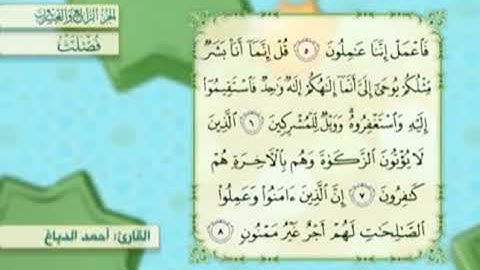 الجزء الرابع والعشرون
فُصِّلَتْ
فَاعْمَلْ إِنَّنَا عَامِلُونَ ٥ قُلْ إِنَّمَا أَنَا بَشَرٌ
مِّثْلُكُمْ يُوحَىٰ إِلَيَّ أَنَّمَا إِلَٰهُكُمْ إِلَٰهٌ وَاحِدٌ فَاسْتَقِيمُوا
إِلَيْهِ وَاسْتَغْفِرُوهُ وَوَيْلٌ لِّلْمُشْرِكِينَ ٦ الَّذِينَ
لَا يُؤْتُونَ الزَّكَوٰةَ وَهُم بِالْآخِرَةِ هُمْ
كَافِرُونَ ٧ إِنَّ الَّذِينَ ءَامَنُوا وَعَمِلُوا
الصَّالِحَاتِ لَهُمْ أَجْرٌ غَيْرُ مَمْنُونٍ ٨
القارئ: أحمد الدباغ